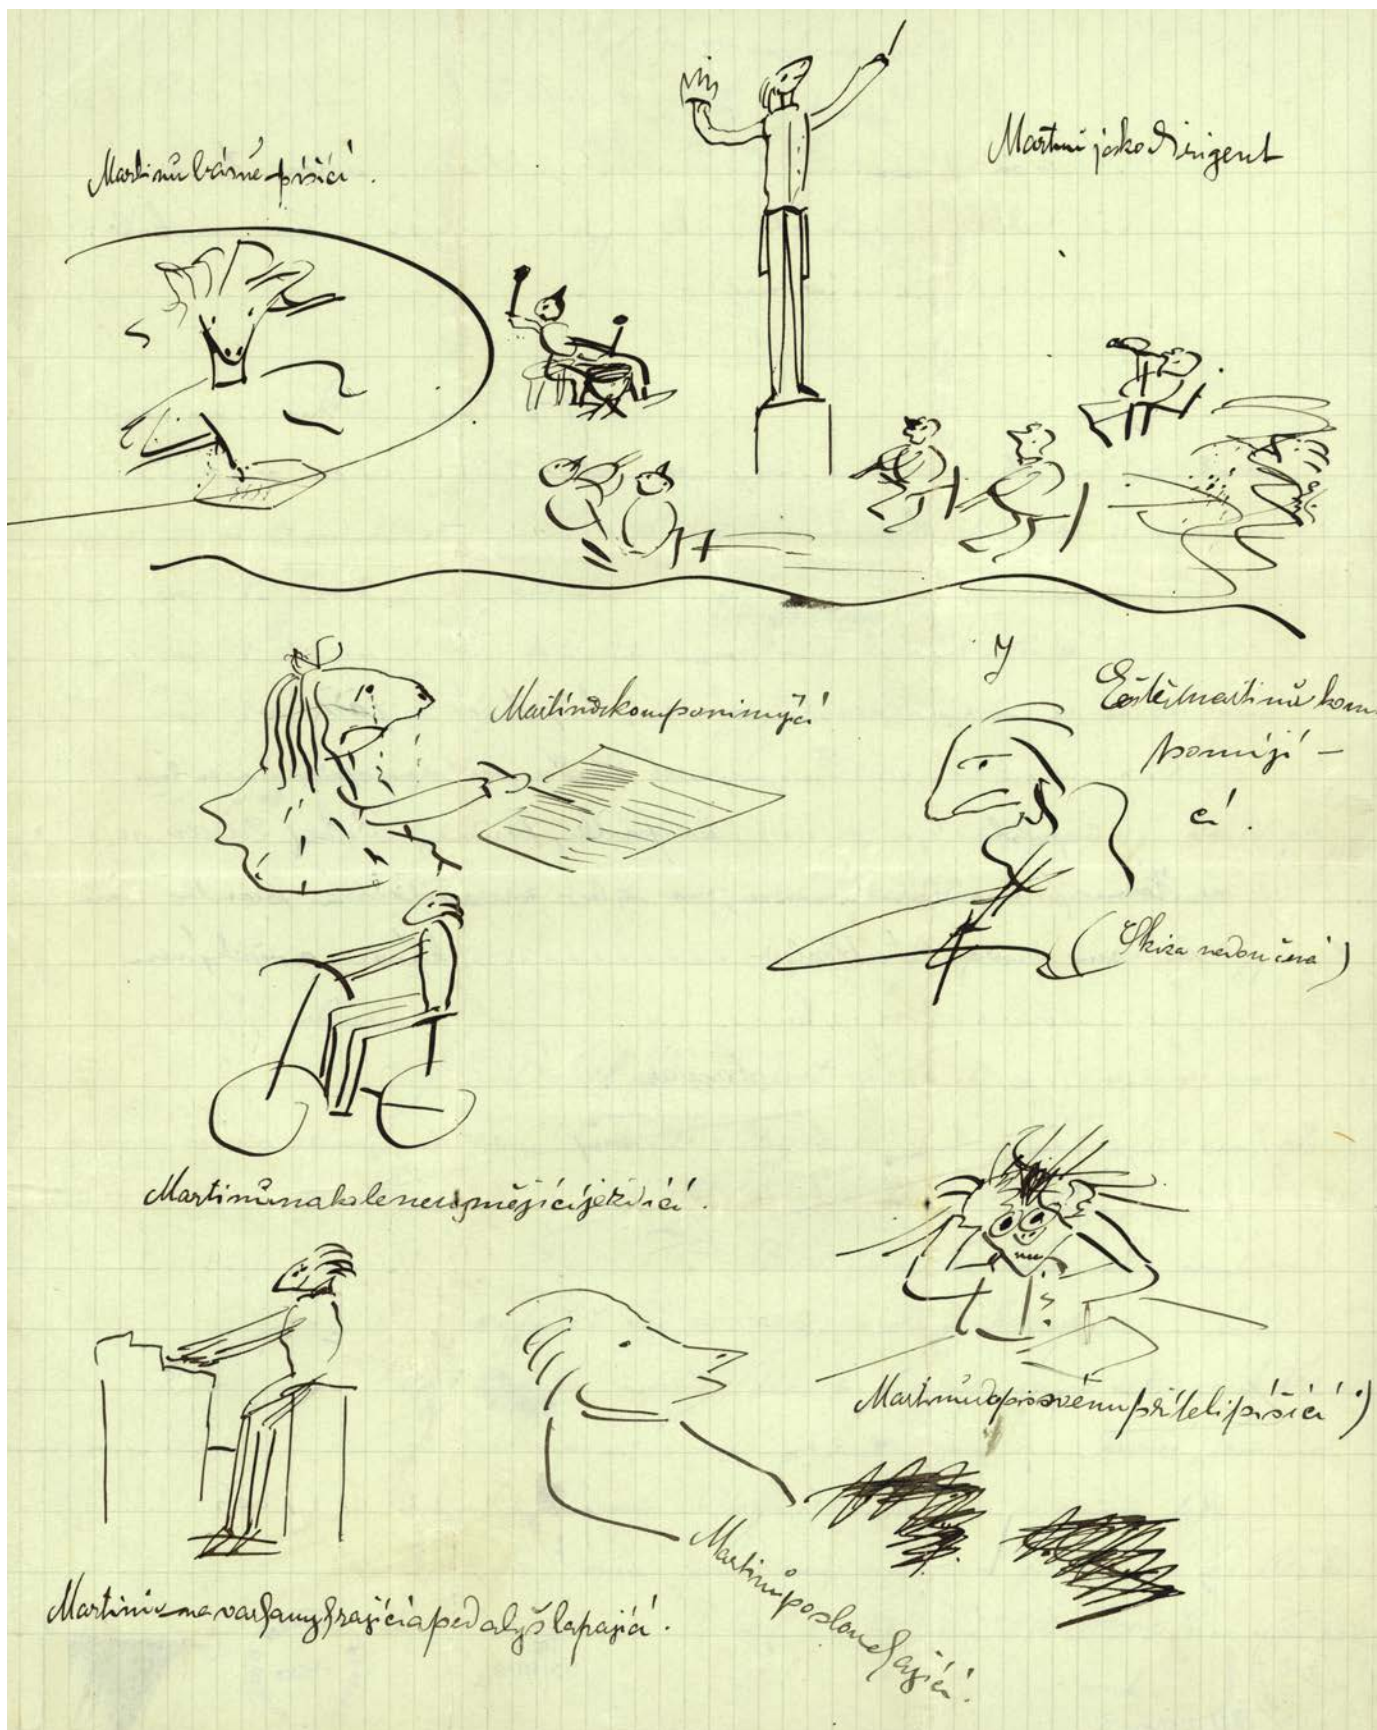 Martinů básně píšící.
Martinů jako dirigent
Martinů komponující
Ještě Martinů kom
ponují-
cí.
(Skiza nedoučená)
Martinů na kole neusmějící jezdící.
Martinů dopis svému příteli píšící)
Martinů na varhany hrající a pedalyšlapající.
Martinů poslouchající.